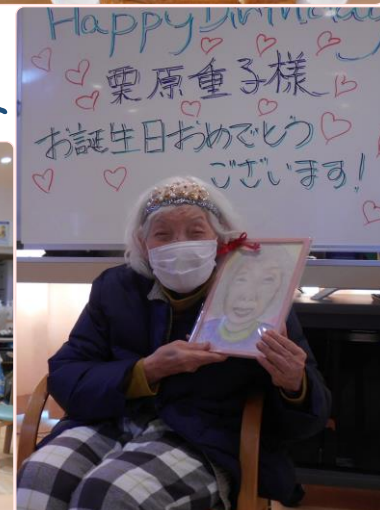 Happy Birthday
栗原重子様
お誕生日おめでとう
ございます!